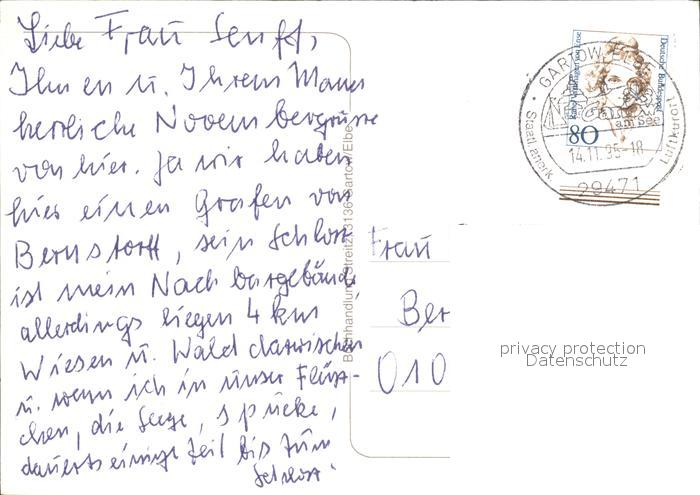 Liebe Frau Senff,
Ihnen u. Ihrem Mann
herzliche Novembergrüsse
von hier. Ja wir haben
hier einen Grafen von
Bernstorff, sein Schloss
ist mein Nachbargebäude,
allerdings liegen 4 km
Wiesen u. Wald dazwischen
u. wenn ich in unser Flüss-
chen, die Seege, spucke,
dauerts einige Zeit bis zum
Schloss.
Buchhandlung Streitz, 3136 Gartow/Elbe
Deutsche Bundespost
80
GARTOW, ELBE
am See
14.11.95-18
29471
Luftkurort
Frau
Ber
010
privacy protection
Datenschutz